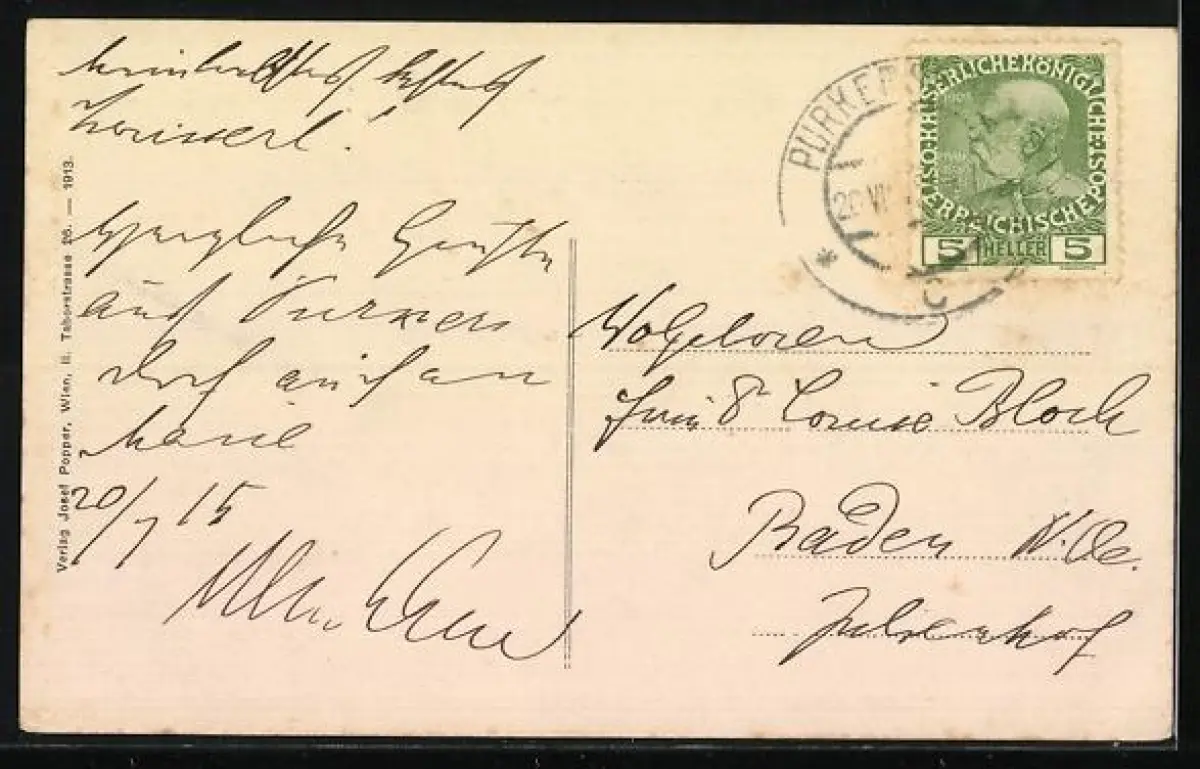 Louiserl!
Herzliche Grüße
aus Purkers
dorf auch an
Marie
20/7 15
Verlag Josef Popper, Wien, II. Taborstrasse 26. — 1913.
PURKERS
KAISERLICHEKÖNIGLICHE
ÖSTERREICHISCHE POST
5 HELLER 5
Wohlgeboren
Louise Bloch
Baden N.Oe.
Julienhof